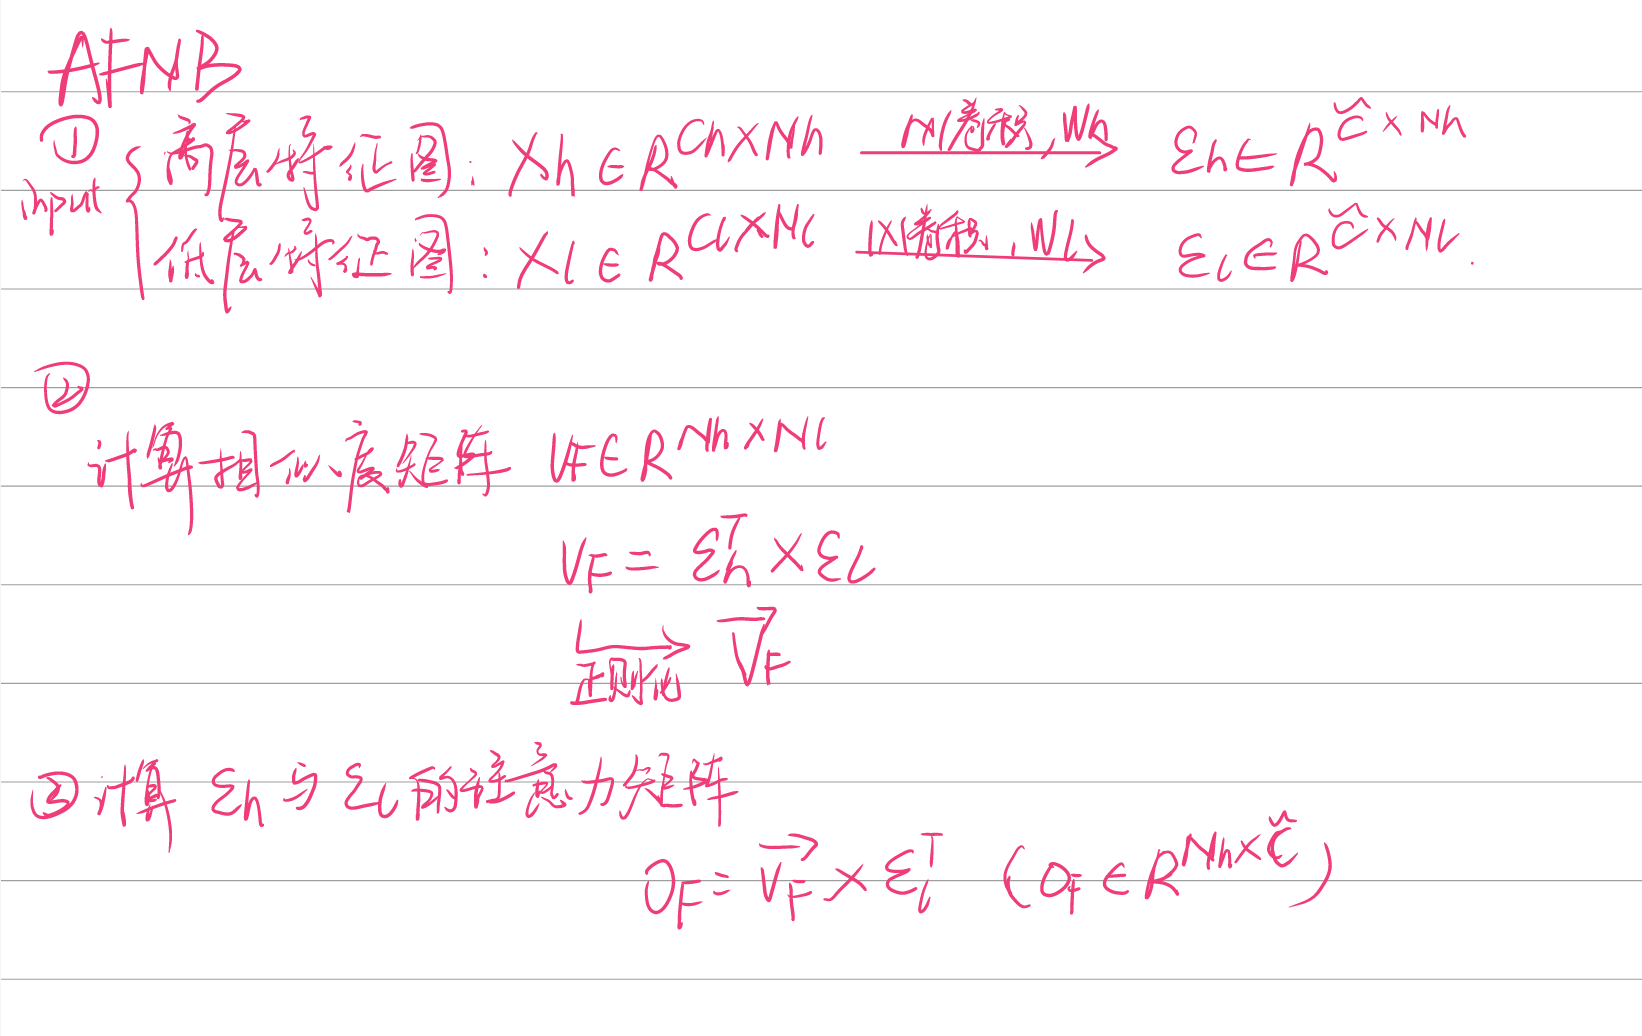 AFNB
① input { 高层特征图: Xh ∈ R^{Ch×Nh} 1×1卷积, Wh → εh ∈ R^{Č×Nh}
低层特征图: Xl ∈ R^{Cl×Nl} 1×1卷积, Wl → εl ∈ R^{Č×Nl}.
②
计算相似度矩阵 VF ∈ R^{Nh×Nl}
VF = εh^T × εl
正则化 → \vec{V}F
③ 计算 εh 与 εl 的注意力矩阵
OF = \vec{VF} × εl^T (OF ∈ R^{Nh×Č})